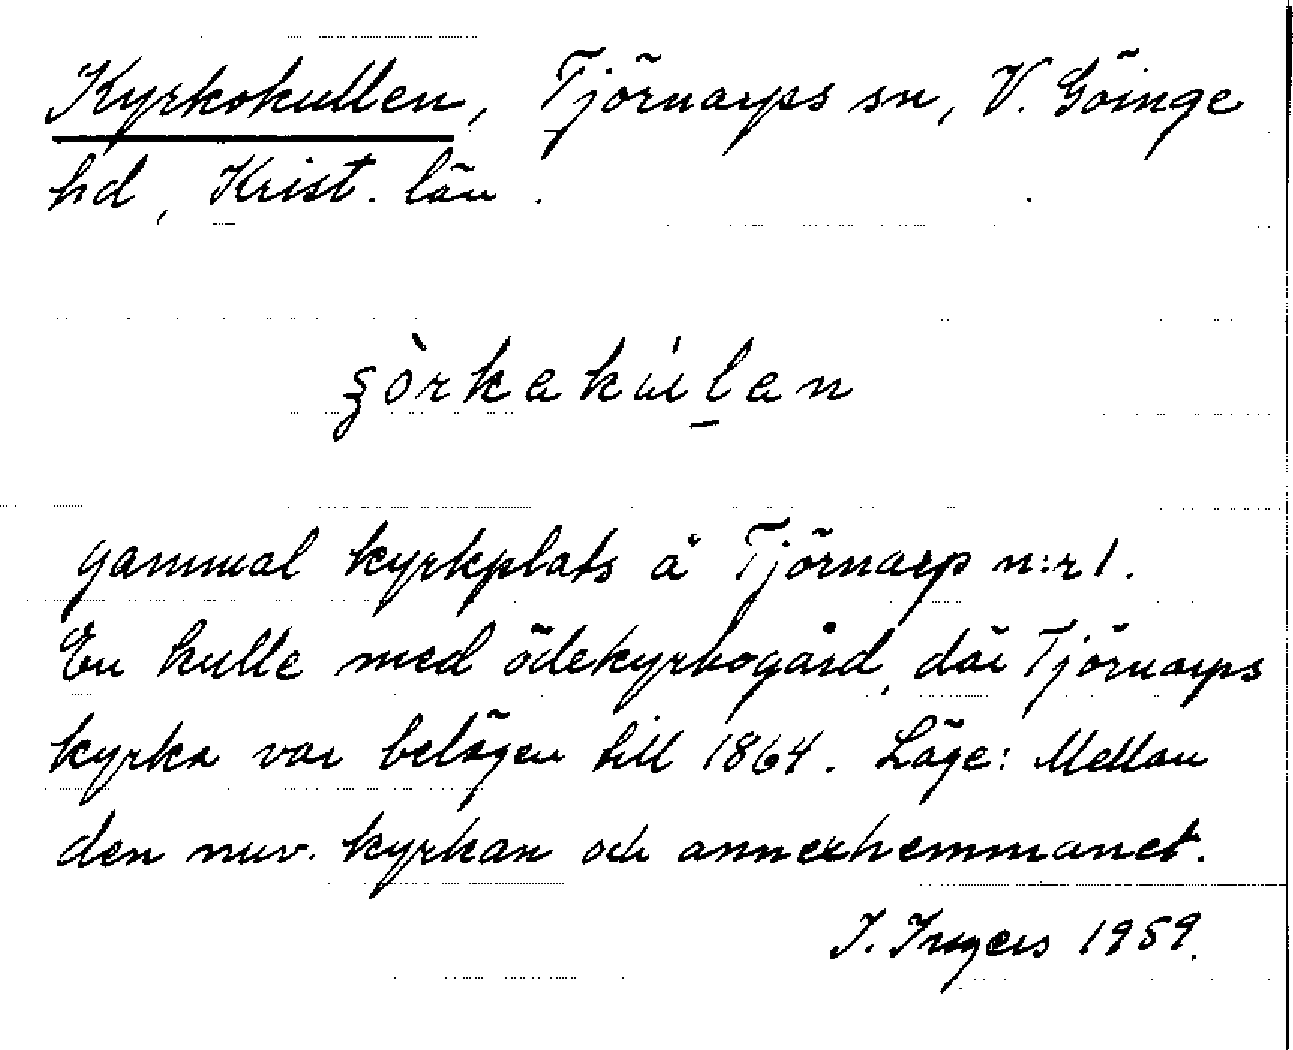 Kyrkokullen, Tjörnarps sn, V. Göinge
hd, Krist. län.
gammal kyrkplats å Tjörnarp n:r 1.
En kulle med ödekyrkogård, där Tjörnarps
kyrka var belägen till 1864. Läge: Mellan
den nuv. kyrkan och annexhemmanet.
I. Ingers 1959.